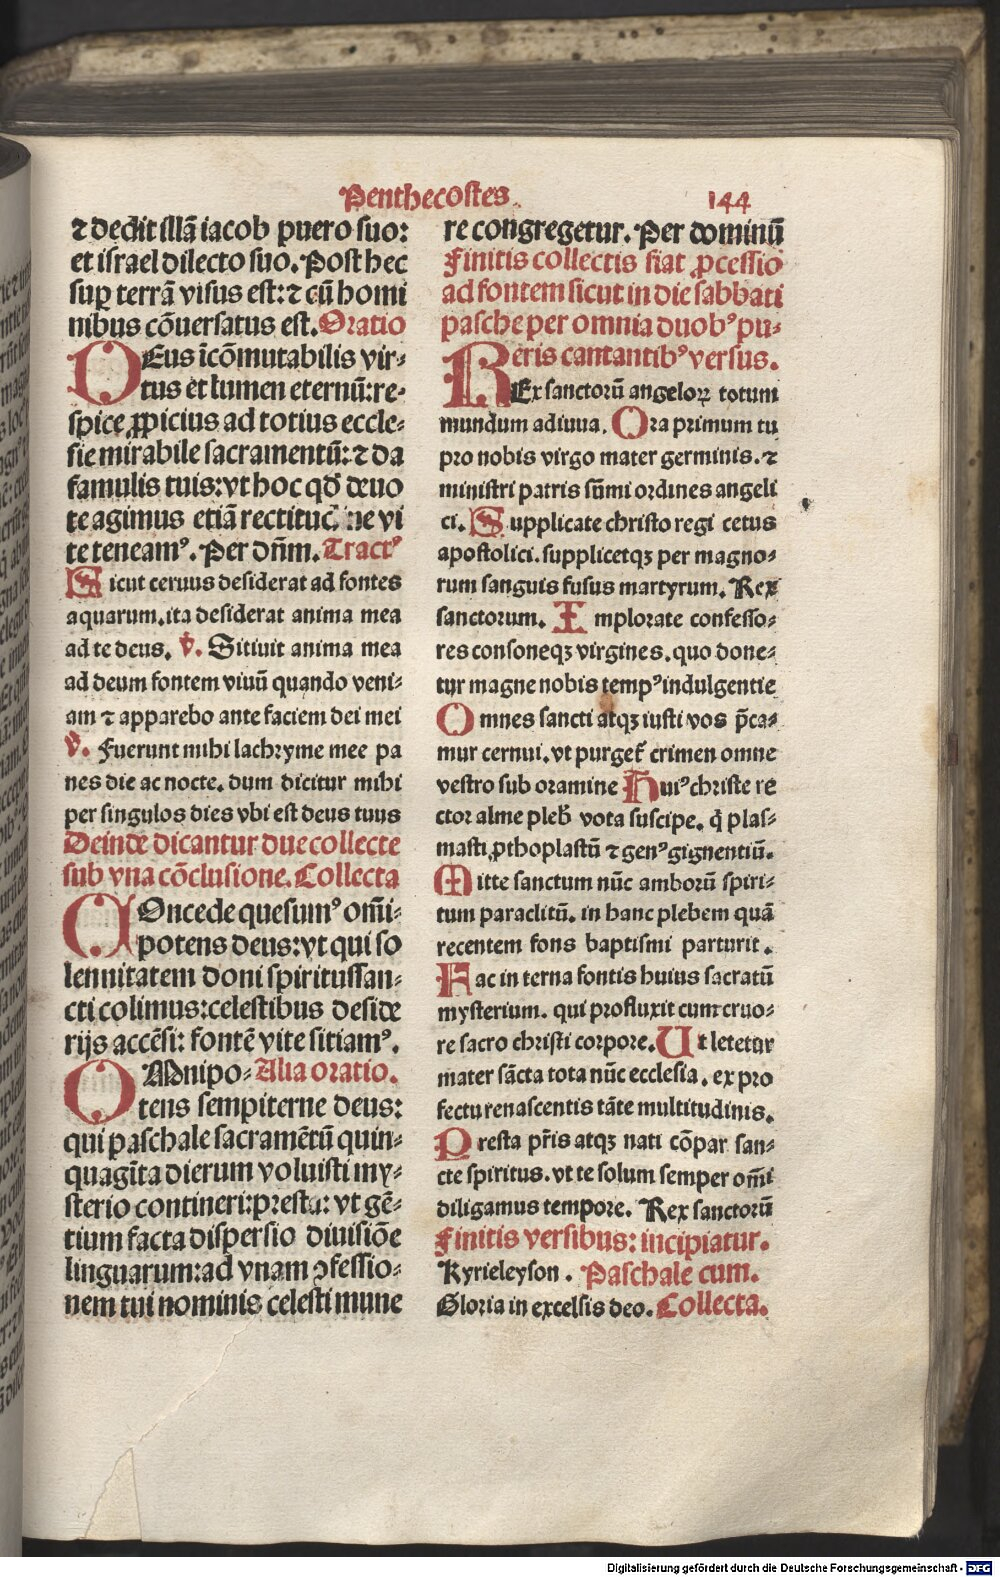 Penthecostes. 144
⁊ dedit illã iacob puero suo:
et israel dilecto suo. Post hec
suꝑ terrã visus est: ⁊ cũ homi
nibus cõuersatus est. Oratio
DEus ĩcõmutabilis vir⸗
tus et lumen eternũ: re⸗
spice ꝓpicius ad totius eccle⸗
sie mirabile sacramentũ: ⁊ da
famulis tuis: vt hoc qđ deuo
te agimus etiã rectitudine vi
te teneamꝰ. Per dñm. Tractꝰ
Sicut ceruus desiderat ad fontes
aquarum. ita desiderat anima mea
ad te deus. ℣. Sitiuit anima mea
ad deum fontem viuũ quando veni⸗
am ⁊ apparebo ante faciem dei mei
℣. Fuerunt mihi lachryme mee pa
nes die ac nocte. dum dicitur mihi
per singulos dies vbi est deus tuus
Deinde dicantur due collecte
sub vna cõclusione. Collecta
COncede quesumꝰ om̃i⸗
potens deus: vt qui so
lennitatem doni spiritussan⸗
cti colimus: celestibus deside
rijs accẽsi: fontẽ vite sitiamꝰ.
OMnipo⸗ Alia oratio.
tens sempiterne deus:
qui paschale sacramẽtũ quin⸗
quagĩta dierum voluisti my⸗
sterio contineri: presta: vt gẽ⸗
tium facta dispersio diuisiõe
linguarum: ad vnam ꝯfessio⸗
nem tui nominis celesti mune
re congregetur. Per dominũ
Finitis collectis fiat ꝓcessio
ad fontem sicut in die sabbati
pasche per omnia duobꝰ pu⸗
eris cantantibꝰ versus.
REx sanctorũ angeloꝝ totum
mundum adiuua. Ora primum tu
pro nobis virgo mater germinis. ⁊
ministri patris sũmi ordines angeli
ci. Supplicate christo regi cetus
apostolici. supplicetqꝫ per magno⸗
rum sanguis fusus martyrum. Rex
sanctorum. Implorate confesso⸗
res consoneqꝫ virgines. quo done⸗
tur magne nobis tempꝰ indulgentie
Omnes sancti atqꝫ iusti vos p̃ca⸗
mur cernui. vt purget᷑ crimen omne
vestro sub oramine Huiꝰ christe re
ctor alme pleb̃ vota suscipe. q̃ plas⸗
masti ꝓthoplastũ ⁊ genꝰ gignentiũ.
Mitte sanctum nũc amborũ spiri⸗
tum paraclitũ. in hanc plebem quã
recentem fons baptismi parturit.
Fac in terna fontis huius sacratũ
mysterium. qui profluxit cum cruo⸗
re sacro christi corpore. Ut letetur
mater sãcta tota nũc ecclesia. ex pro
fectu renascentis tãte multitudinis.
Presta p̃ris atqꝫ nati cõpar san⸗
cte spiritus. vt te solum semper om̃i
diligamus tempore. Rex sanctorũ
Finitis versibus: incipiatur.
Kyrieleyson. Paschale cum.
Gloria in excelsis deo. Collecta.
Digitalisierung gefördert durch die Deutsche Forschungsgemeinschaft - DFG